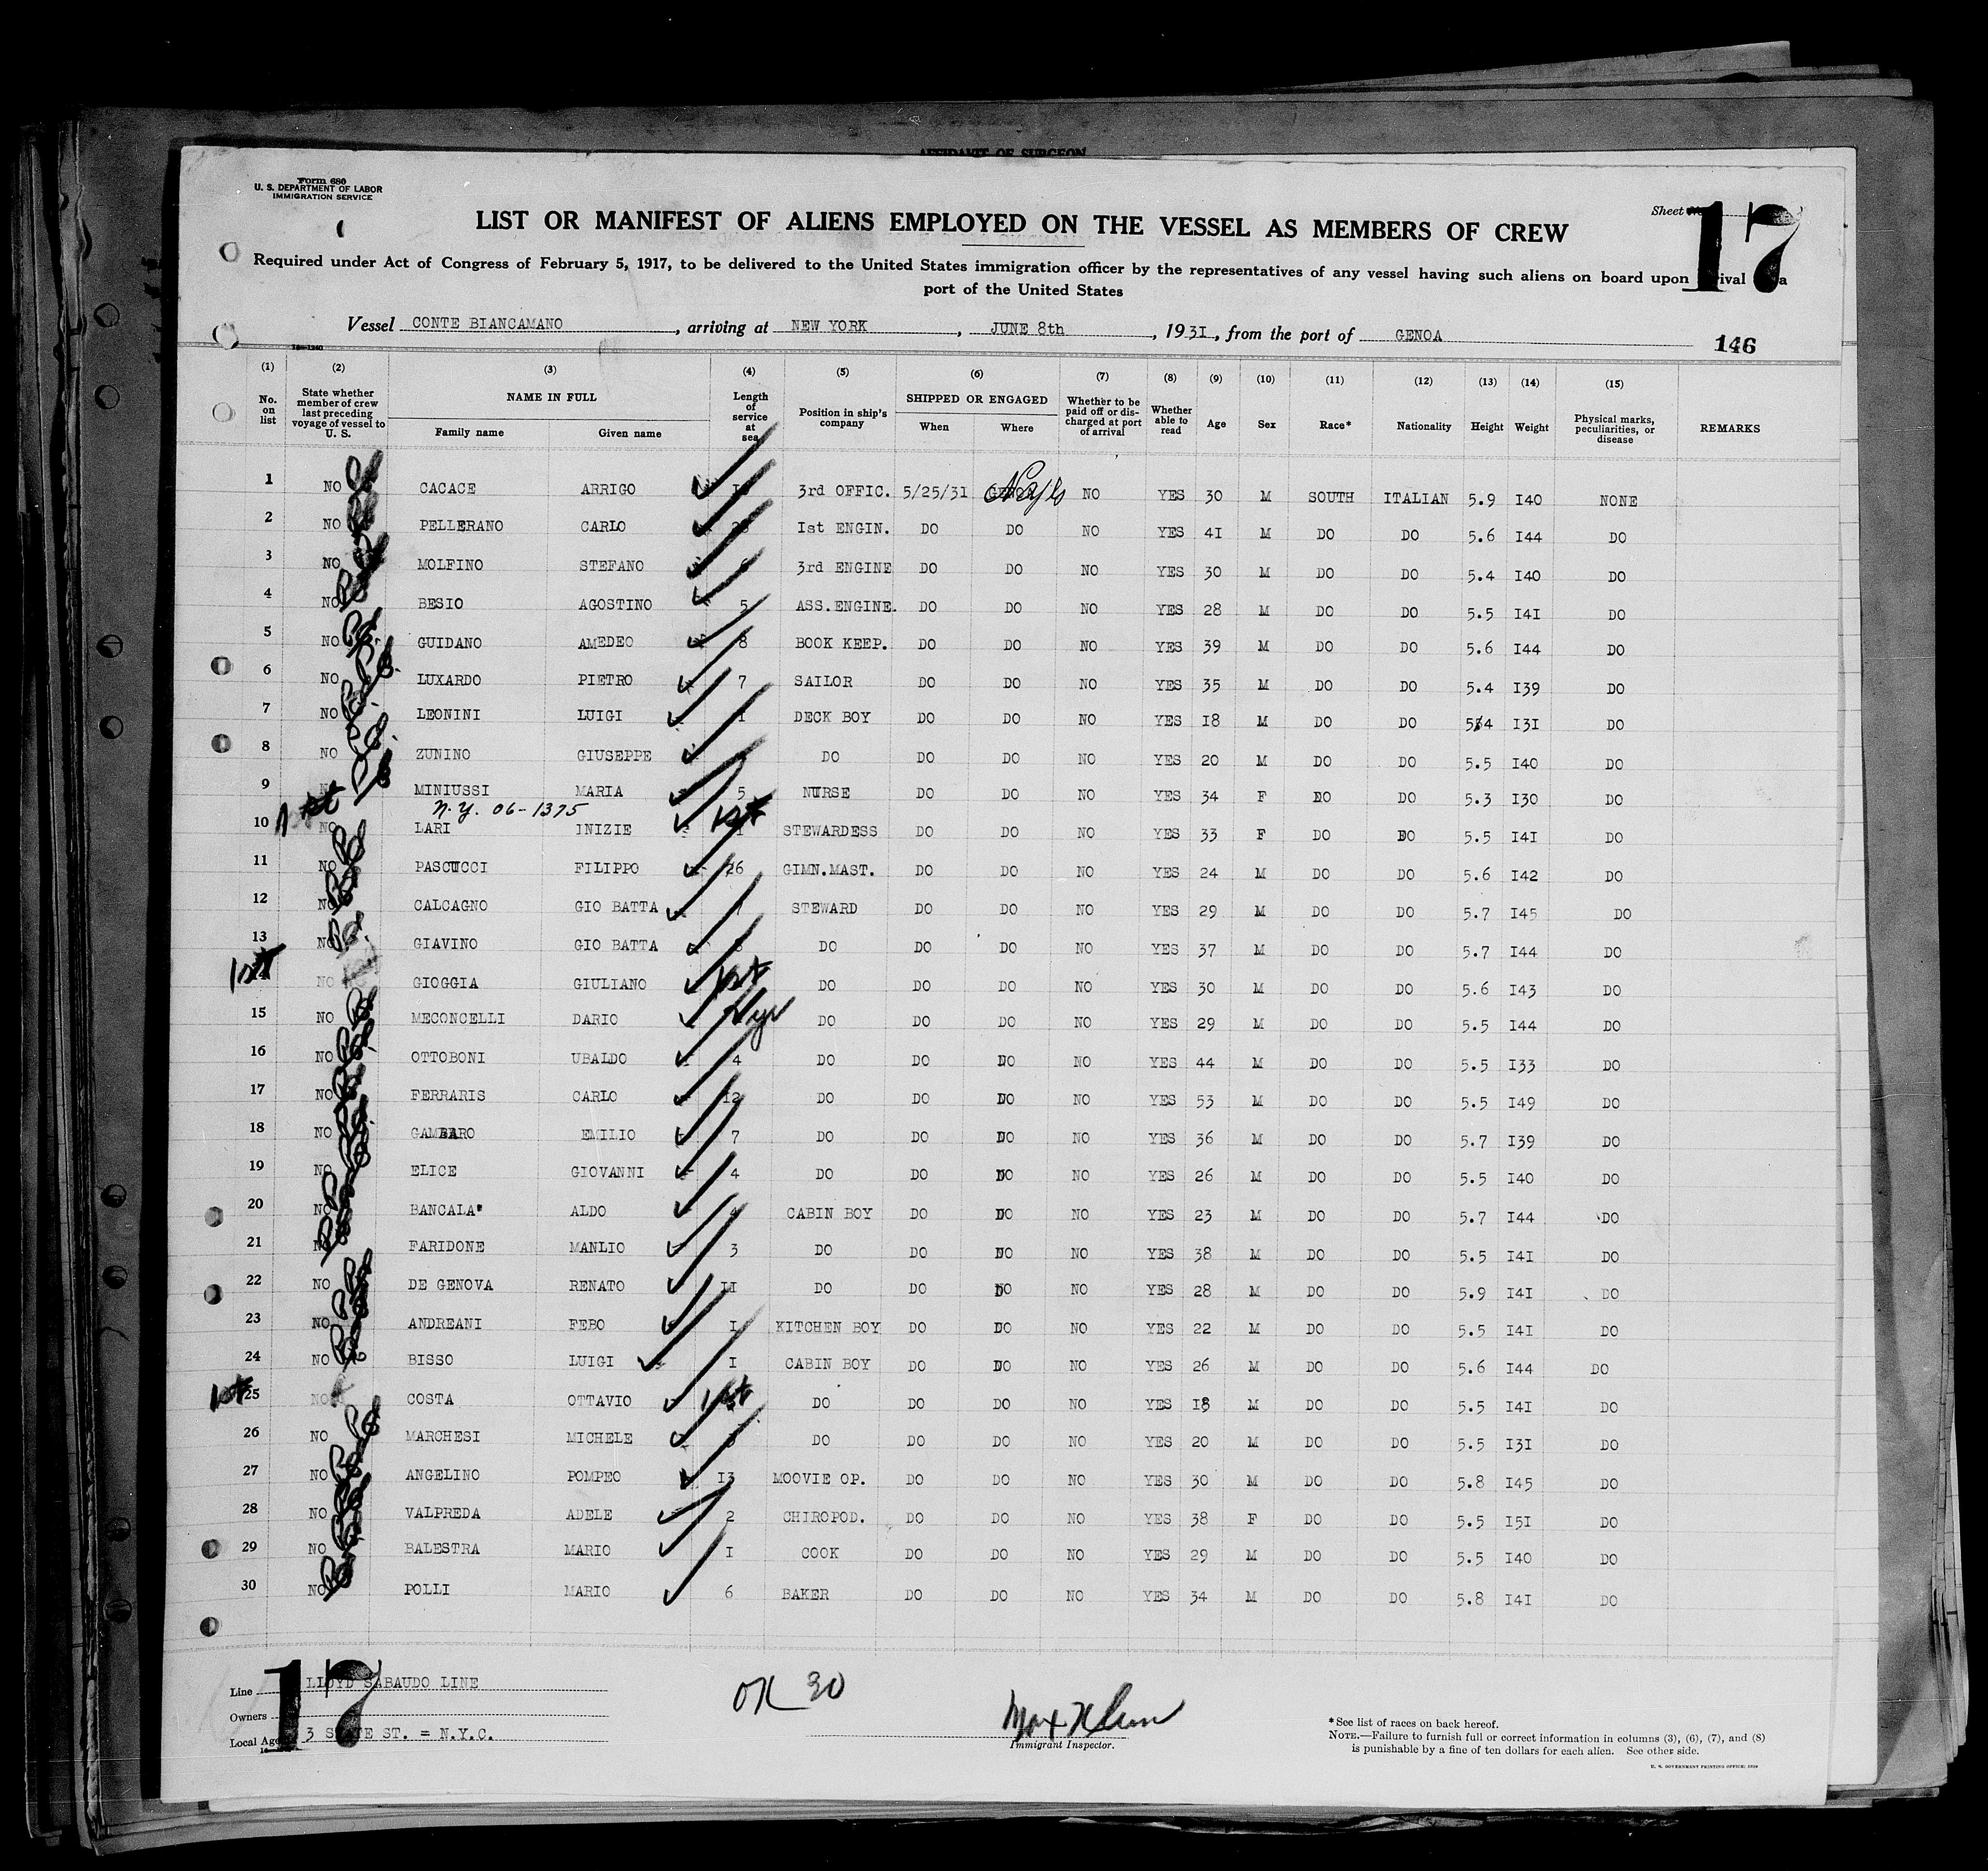 AFFIDAVIT OF SURGEON
Form 680
U. S. DEPARTMENT OF LABOR
IMMIGRATION SERVICE
Sheet
17
LIST OR MANIFEST OF ALIENS EMPLOYED ON THE VESSEL AS MEMBERS OF CREW
Required under Act of Congress of February 5, 1917, to be delivered to the United States immigration officer by the representatives of any vessel having such aliens on board upon arrival a
port of the United States
Vessel CONTE BIANCAMANO, arriving at NEW YORK, JUNE 8th, 1931, from the port of GENOA
146
(1) (2) (3) (4) (5) (6) (7) (8) (9) (10) (11) (12) (13) (14) (15)
No. on list State whether member of crew last preceding voyage of vessel to U. S. NAME IN FULL Family name Given name Length of service at sea Position in ship's company SHIPPED OR ENGAGED When Where Whether to be paid off or discharged at port of arrival Whether able to read Age Sex Race* Nationality Height Weight Physical marks, peculiarities, or disease REMARKS
1 NO CACACE ARRIGO 3rd OFFIC. 5/25/31 NO YES 30 M SOUTH ITALIAN 5.9 I40 NONE
2 NO PELLERANO CARLO Ist ENGIN. DO DO NO YES 4I M DO DO 5.6 I44 DO
3 NO MOLFINO STEFANO 6 3rd ENGINE DO DO NO YES 30 M DO DO 5.4 I40 DO
4 NO BESIO AGOSTINO 5 ASS.ENGINE. DO DO NO YES 28 M DO DO 5.5 I4I DO
5 NO GUIDANO AMEDEO 8 BOOK KEEP. DO DO NO YES 39 M DO DO 5.6 I44 DO
6 NO LUXARDO PIETRO 7 SAILOR DO DO NO YES 35 M DO DO 5.4 I39 DO
7 NO LEONINI LUIGI I DECK BOY DO DO NO YES I8 M DO DO 5.4 I3I DO
8 NO ZUNINO GIUSEPPE DO DO DO NO YES 20 M DO DO 5.5 I40 DO
9 MINIUSSI MARIA 5 NURSE DO DO NO YES 34 F DO DO 5.3 I30 DO
1st N.Y. 06-1375
10 NO LARI INIZIE 1st STEWARDESS DO DO NO YES 33 F DO DO 5.5 I4I DO
11 NO PASCUCCI FILIPPO 26 GIMN.MAST. DO DO NO YES 24 M DO DO 5.6 I42 DO
12 NO CALCAGNO GIO BATTA 7 STEWARD DO DO NO YES 29 M DO DO 5.7 I45 DO
13 NO GIAVINO GIO BATTA 8 DO DO DO NO YES 37 M DO DO 5.7 I44 DO
1st 14 NO GIOGGIA GIULIANO 1st DO DO DO NO YES 30 M DO DO 5.6 I43 DO
15 NO MECONCELLI DARIO yr DO DO DO NO YES 29 M DO DO 5.5 I44 DO
16 NO OTTOBONI UBALDO 4 DO DO DO NO YES 44 M DO DO 5.5 I33 DO
17 NO FERRARIS CARLO I2 DO DO DO NO YES 53 M DO DO 5.5 I49 DO
18 NO GAMBARO EMILIO 7 DO DO DO NO YES 36 M DO DO 5.7 I39 DO
19 NO ELICE GIOVANNI 4 DO DO DO NO YES 26 M DO DO 5.5 I40 DO
20 NO BANCALA' ALDO 4 CABIN BOY DO DO NO YES 23 M DO DO 5.7 I44 DO
21 NO FARIDONE MANLIO 3 DO DO DO NO YES 38 M DO DO 5.5 I4I DO
22 NO DE GENOVA RENATO II DO DO DO NO YES 28 M DO DO 5.9 I4I DO
23 NO ANDREANI FEBO I KITCHEN BOY DO DO NO YES 22 M DO DO 5.5 I4I DO
24 NO BISSO LUIGI I CABIN BOY DO DO NO YES 26 M DO DO 5.6 I44 DO
1st 25 NO COSTA OTTAVIO 1st DO DO DO NO YES I8 M DO DO 5.5 I4I DO
26 NO MARCHESI MICHELE DO DO DO NO YES 20 M DO DO 5.5 I3I DO
27 NO ANGELINO POMPEO I3 MOOVIE OP. DO DO NO YES 30 M DO DO 5.8 I45 DO
28 NO VALPREDA ADELE 2 CHIROPOD. DO DO NO YES 38 F DO DO 5.5 I5I DO
29 NO BALESTRA MARIO I COOK DO DO NO YES 29 M DO DO 5.5 I40 DO
30 NO POLLI MARIO 6 BAKER DO DO NO YES 34 M DO DO 5.8 I4I DO
17
Line LLOYD SABAUDO LINE
Owners
Local Age 3 STATE ST. = N.Y.C.
OK 30
Immigrant Inspector.
*See list of races on back hereof.
NOTE.—Failure to furnish full or correct information in columns (3), (6), (7), and (8)
is punishable by a fine of ten dollars for each alien. See other side.
U. S. GOVERNMENT PRINTING OFFICE: